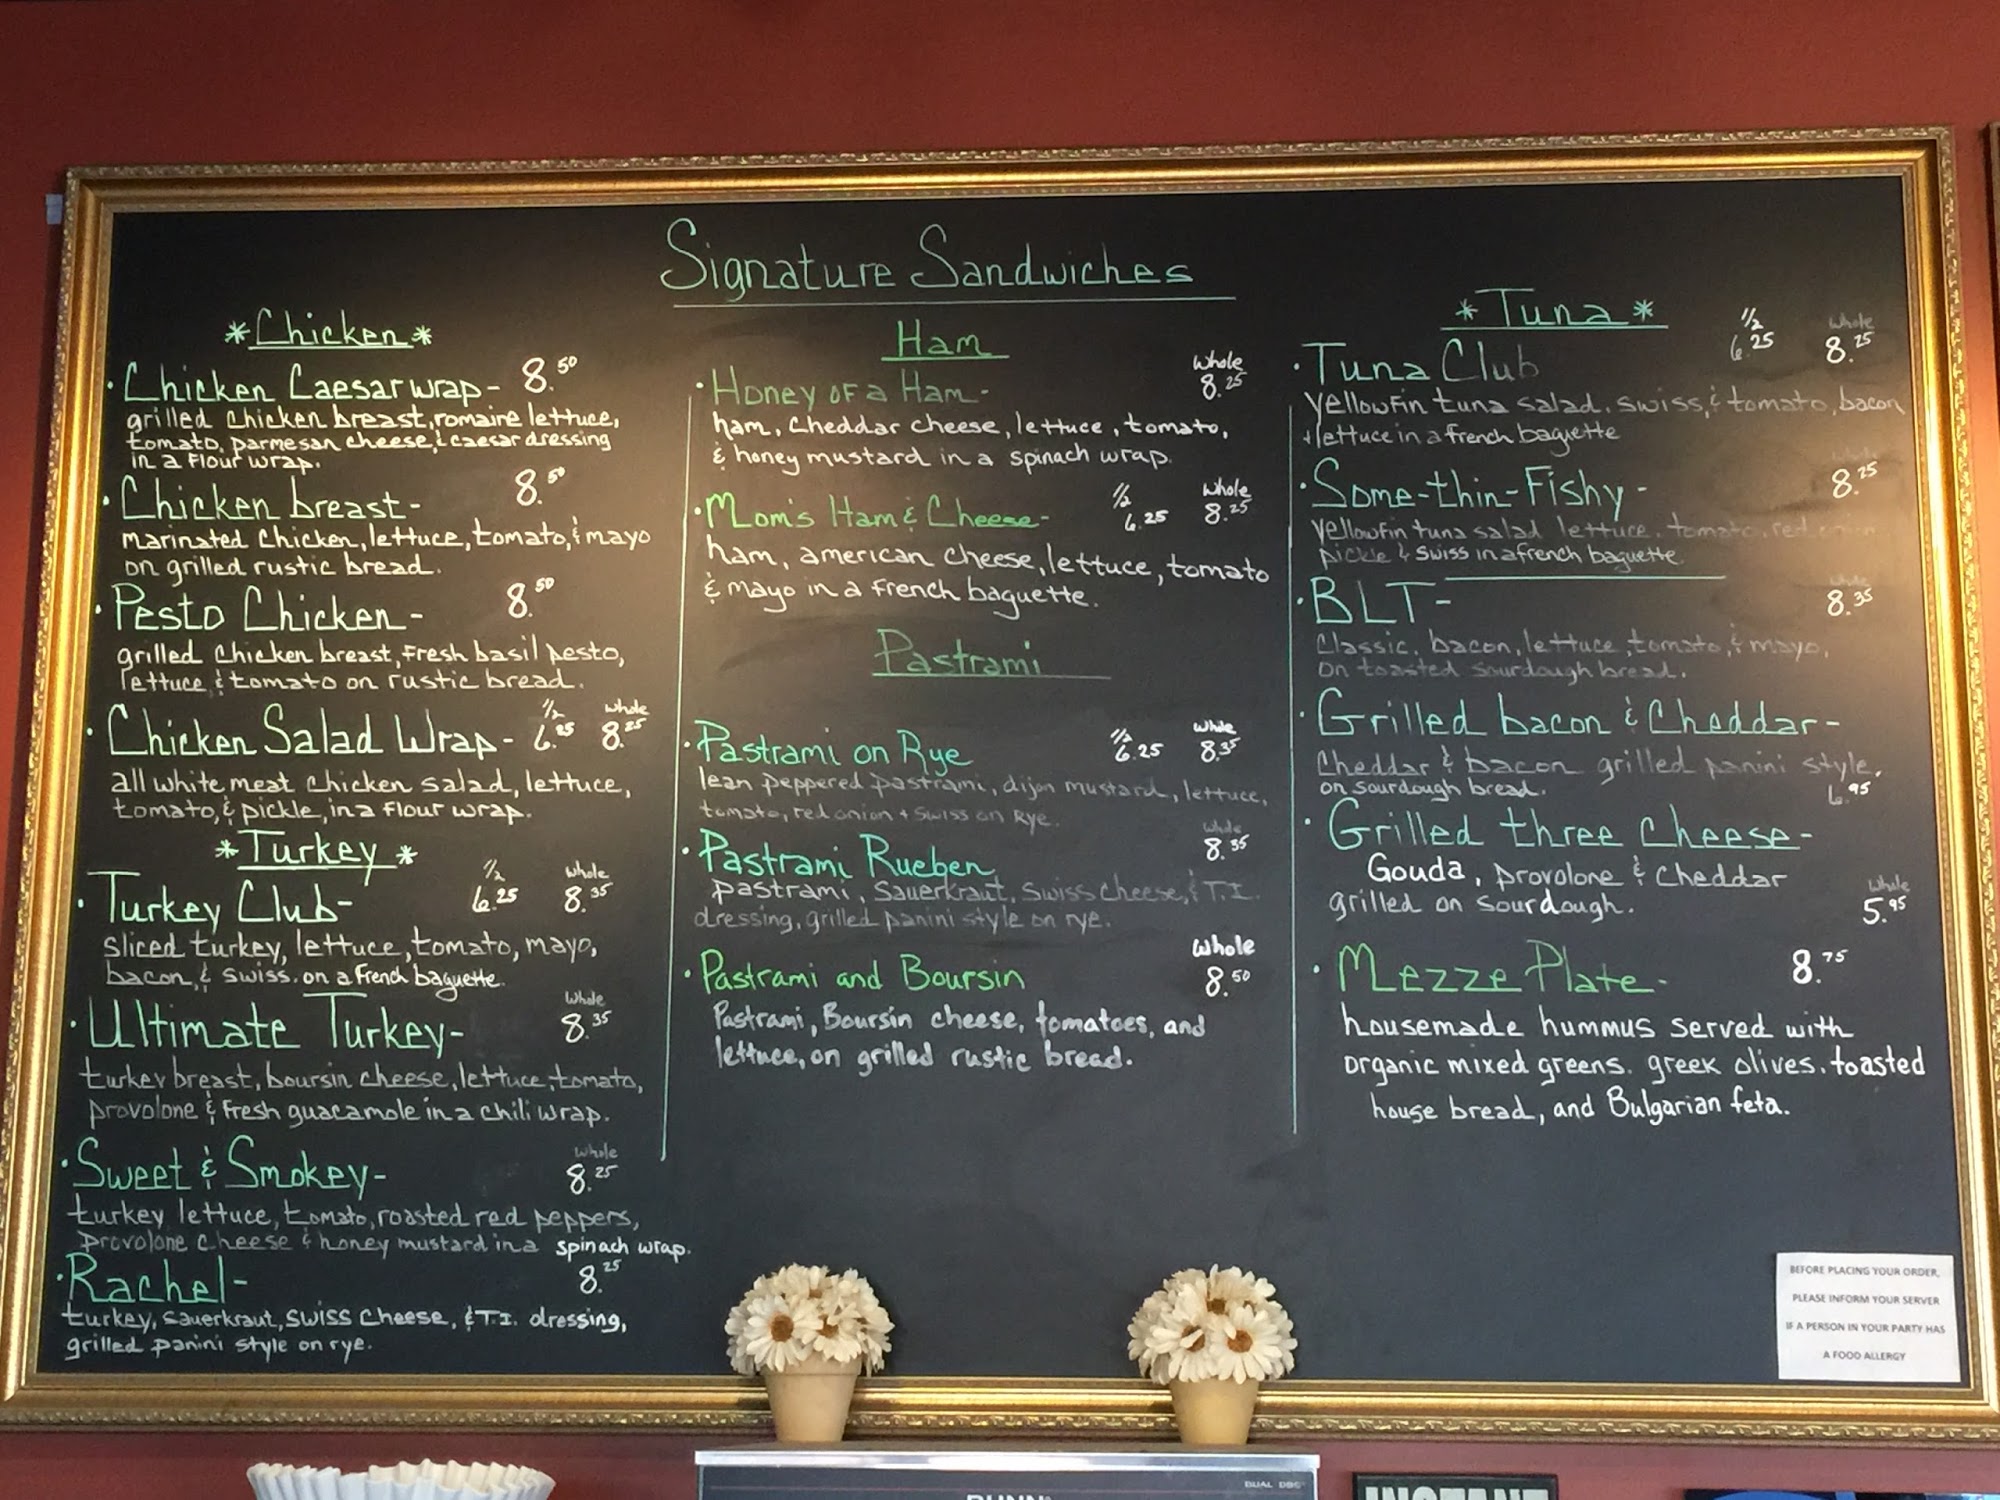 Signature Sandwiches
*Chicken*
· Chicken Caesar wrap - 8.50
grilled chicken breast, romaine lettuce,
tomato, parmesan cheese, & caesar dressing
in a flour wrap.
· Chicken breast - 8.50
marinated chicken, lettuce, tomato, & mayo
on grilled rustic bread.
· Pesto Chicken - 8.50
grilled chicken breast, fresh basil pesto,
lettuce & tomato on rustic bread.
1/2 whole
· Chicken Salad Wrap - 6.25 8.25
all white meat chicken salad, lettuce,
tomato, & pickle, in a flour wrap.
*Turkey*
1/2 whole
· Turkey Club - 6.25 8.35
sliced turkey, lettuce, tomato, mayo,
bacon, & swiss. on a french baguette.
Whole
· Ultimate Turkey - 8.35
turkey breast, boursin cheese, lettuce, tomato,
provolone & fresh guacamole in a chili wrap.
Whole
· Sweet & Smokey - 8.25
turkey lettuce, tomato, roasted red peppers,
provolone cheese & honey mustard in a spinach wrap.
· Rachel - 8.25
turkey, sauerkraut, swiss cheese, & T.I. dressing,
grilled panini style on rye.
Ham
Whole
· Honey of a Ham - 8.25
ham, cheddar cheese, lettuce, tomato,
& honey mustard in a spinach wrap.
1/2 Whole
· Mom's Ham & Cheese - 6.25 8.25
ham, american cheese, lettuce, tomato
& mayo in a french baguette.
Pastrami
1/2 Whole
· Pastrami on Rye 6.25 8.35
lean peppered pastrami, dijon mustard, lettuce,
tomato, red onion + swiss on Rye.
Whole
· Pastrami Rueben 8.35
pastrami, sauerkraut, swiss cheese, & T.I.
dressing, grilled panini style on rye.
Whole
· Pastrami and Boursin 8.50
Pastrami, Boursin cheese, tomatoes, and
lettuce, on grilled rustic bread.
*Tuna*
1/2 Whole
· Tuna Club 6.25 8.25
yellowfin tuna salad. swiss, & tomato, bacon
+ lettuce in a french baguette
· Some-thin-Fishy - 8.25
yellowfin tuna salad lettuce, tomato, red onion
pickle & swiss in a french baguette.
Whole
· BLT - 8.35
Classic. bacon, lettuce tomato, & mayo,
on toasted sourdough bread.
· Grilled bacon & Cheddar -
Cheddar & bacon grilled panini style.
on sourdough bread. 6.95
· Grilled three cheese -
Gouda, provolone & cheddar
Whole
grilled on sourdough. 5.95
· Mezze Plate - 8.75
housemade hummus served with
organic mixed greens. greek olives. toasted
house bread, and Bulgarian feta.
BEFORE PLACING YOUR ORDER,
PLEASE INFORM YOUR SERVER
IF A PERSON IN YOUR PARTY HAS
A FOOD ALLERGY
DUAL DBC
BUNN
INSTANT